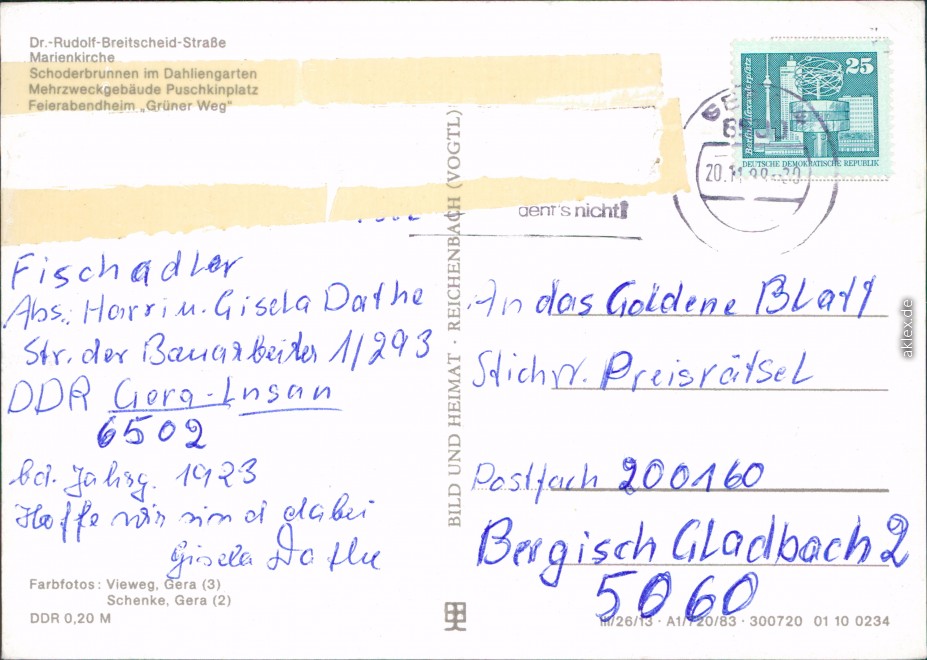 Dr.-Rudolf-Breitscheid-Straße
Marienkirche
Schoderbrunnen im Dahliengarten
Mehrzweckgebäude Puschkinplatz
Feierabendheim „Grüner Weg"
25
Berlin-Alexanderplatz
DEUTSCHE DEMOKRATISCHE REPUBLIK
geht's nicht!
Fischadler
Abs.: Harri u. Gisela Dathe
Str. der Bauarbeiter 1/293
DDR Gera-Lusan
6502
bd. Jahrg. 1923
Hoffe wir sind dabei
Gisela Dathe
Farbfotos: Vieweg, Gera (3)
Schenke, Gera (2)
DDR 0,20 M
BILD UND HEIMAT · REICHENBACH (VOGTL)
An das Goldene Blatt
Stichw. Preisrätsel
Postfach 200160
Bergisch Gladbach 2
5060
III/26/13 · A1/720/83 · 300720 01 10 0234
aklex.de